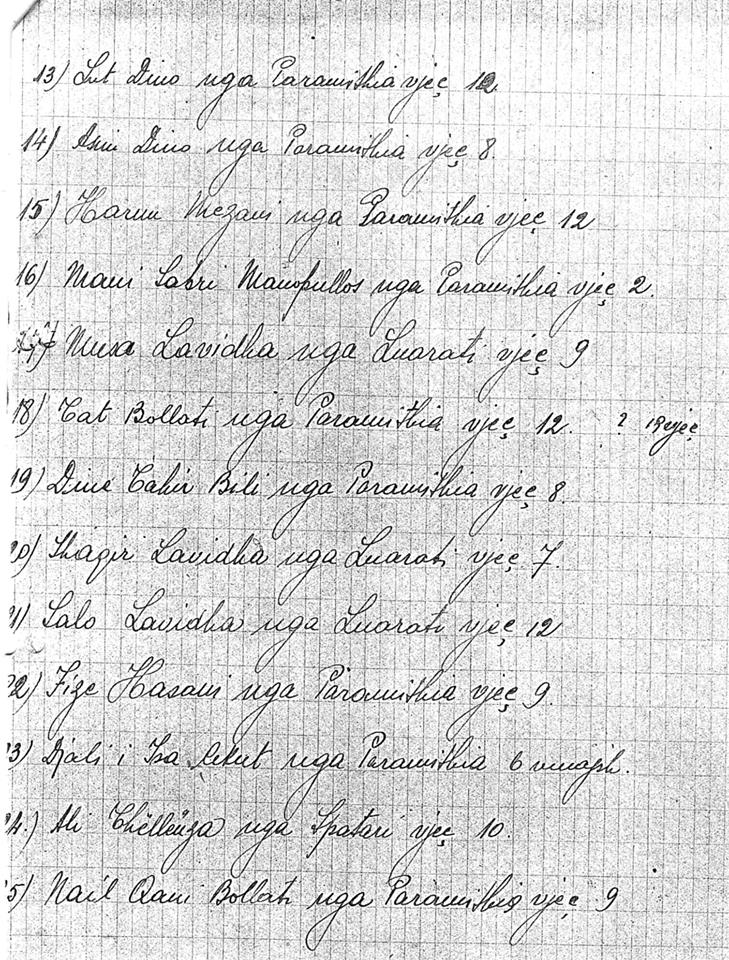 13) Lut Dino nga Paramithia vjeç 12.
14) Asim Dino nga Paramithia vjeç 8.
15) Harun Mezani nga Paramithia vjeç 12
16) Mani Sabri Manopullos nga Paramithia vjeç 2.
17) Musa Lavidha nga Luarati vjeç 9
18) Tat Bollati nga Paramithia vjeç 12. ? 12 vjeç
19) Dine Tahir Bili nga Paramithia vjeç 8.
20) Shaqir Lavidha nga Luarati vjeç 7.
21) Salo Lavidha nga Luarati vjeç 12
22) Fize Hasani nga Paramithia vjeç 9.
23) Djali i Isa nga Paramithia 6 muajsh.
24.) Ali nga Spatari vjeç 10.
25) Nail Qani Bollati nga Paramithia vjeç 9